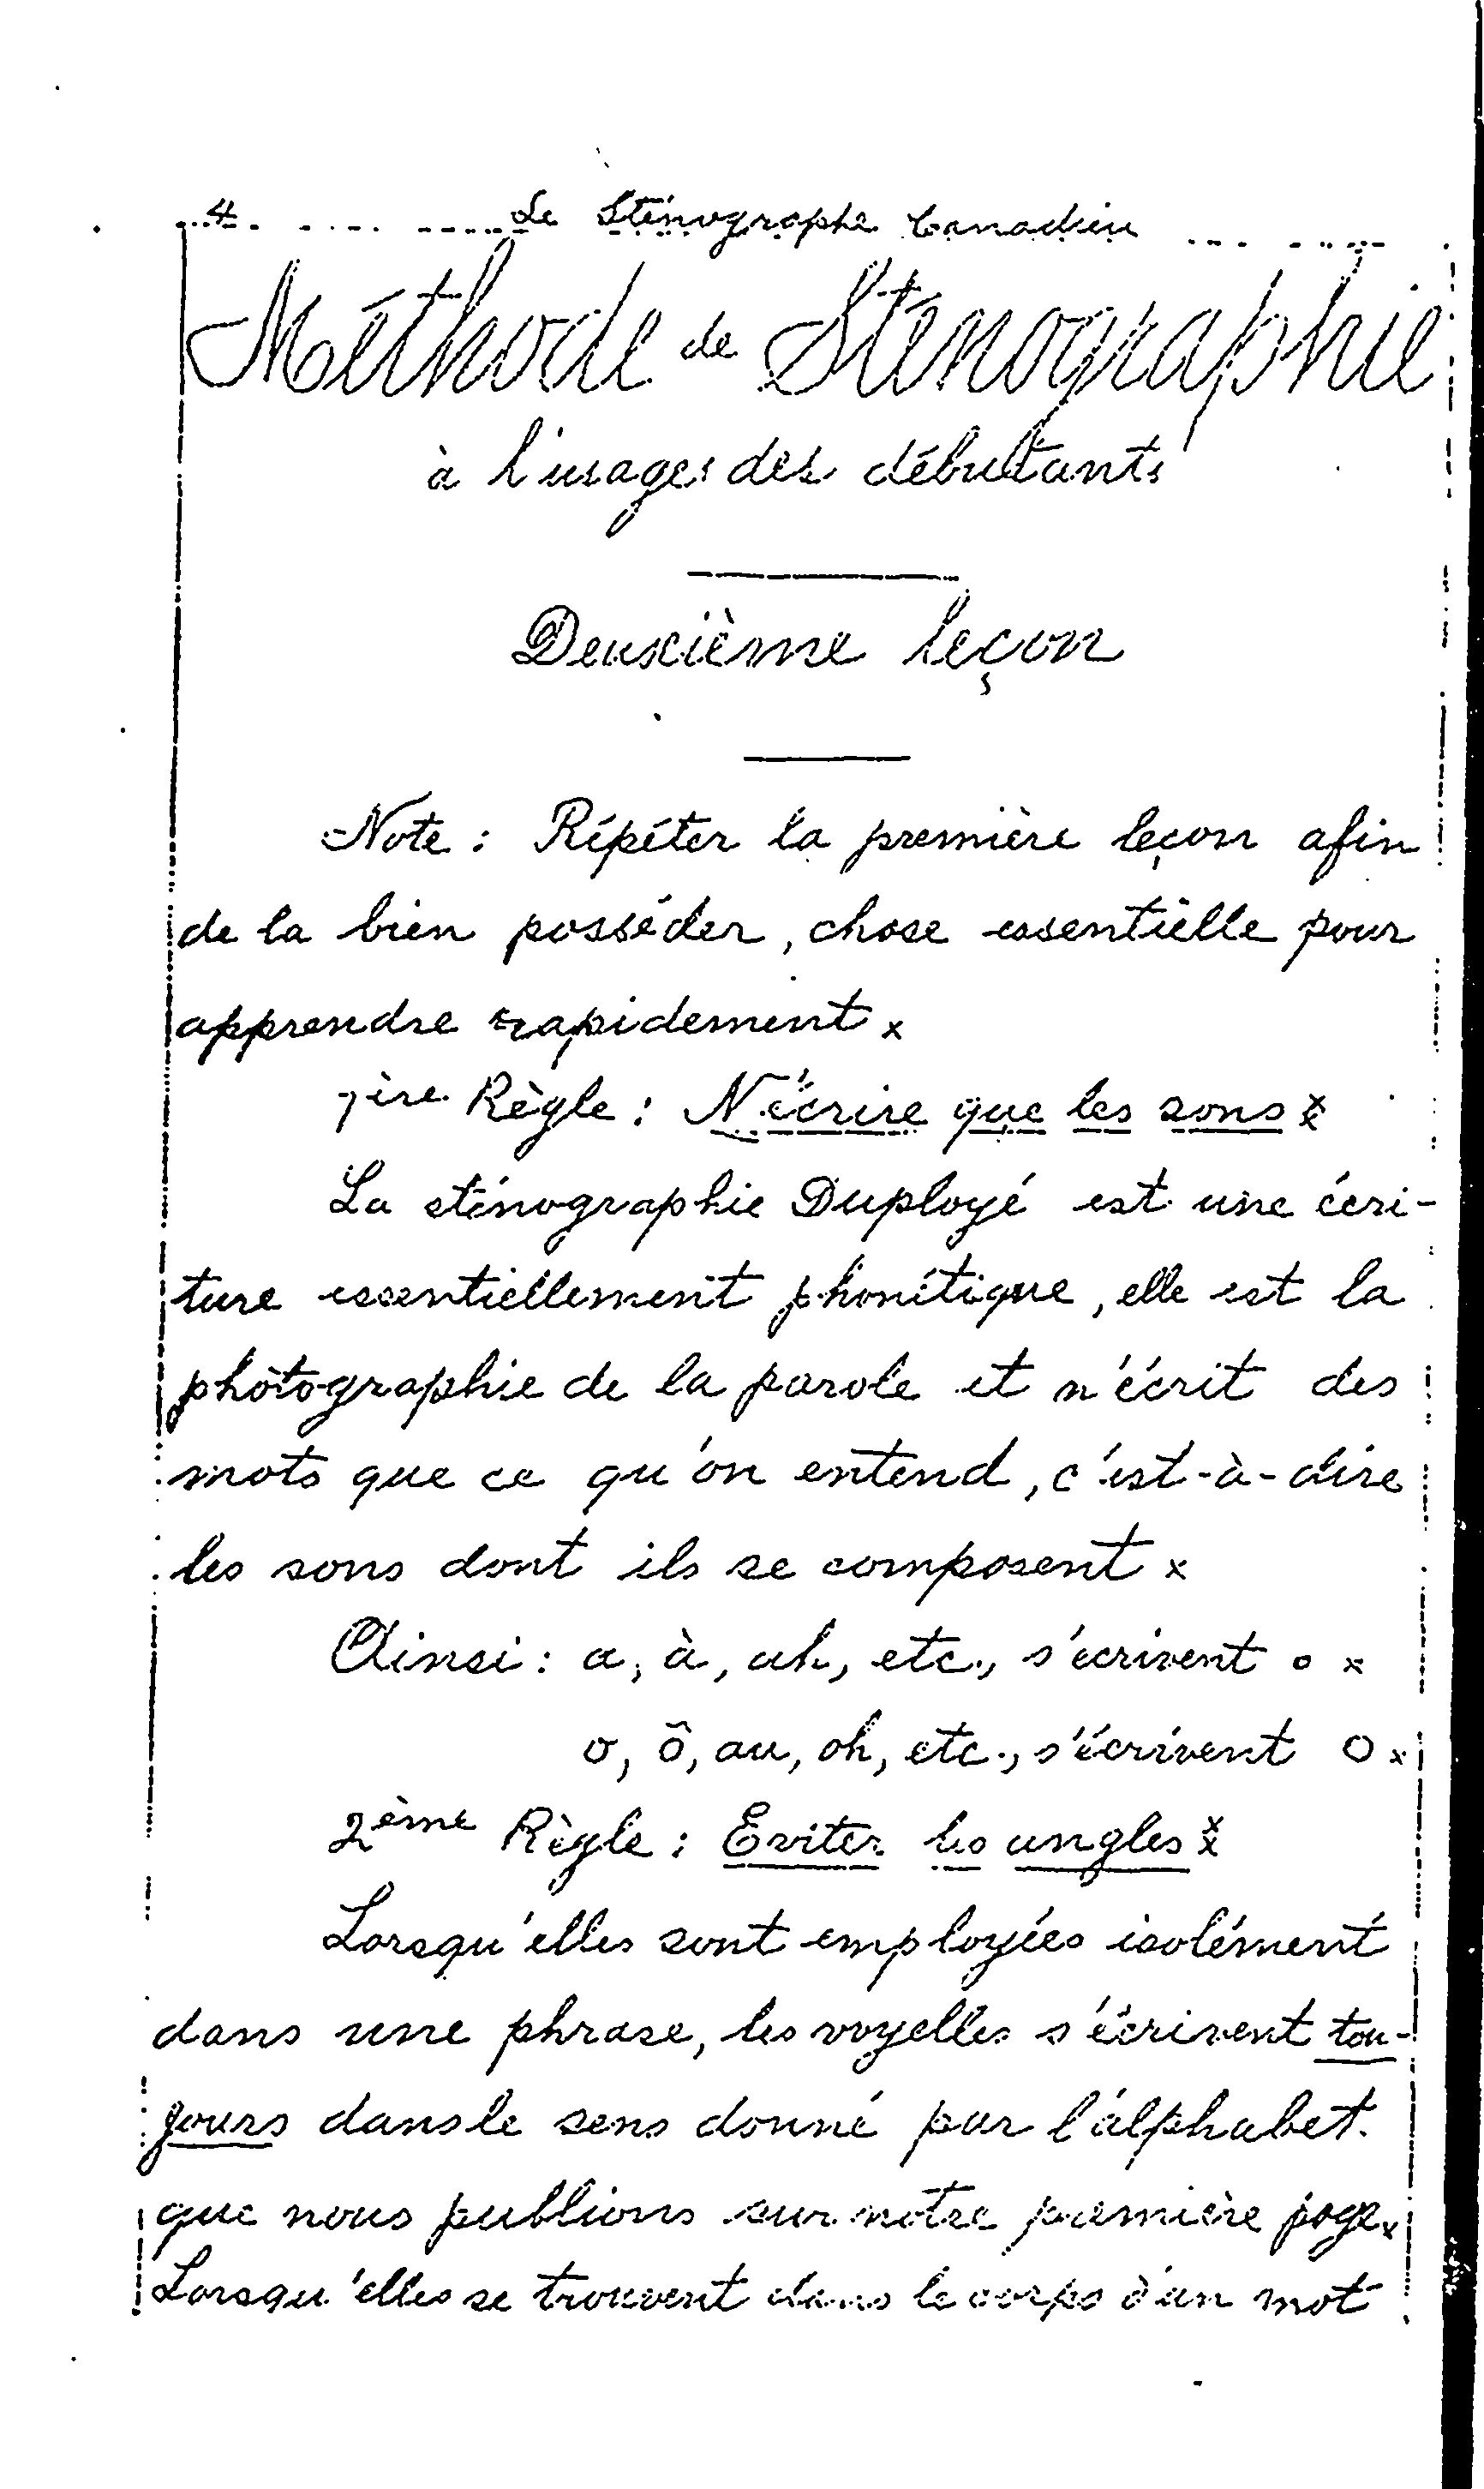 4 Le Sténographe Canadien
Méthode de Sténographie
à l'usage des débutants
Deuxième leçon
Note : Répéter la première leçon afin
de la bien posséder, chose essentielle pour
apprendre rapidement x
1ère Règle : N'écrire que les sons x
La sténographie Duployé est une écri-
ture essentiellement phonétique, elle est la
photographie de la parole et n'écrit des
mots que ce qu'on entend, c'est-à-dire
les sons dont ils se composent x
Ainsi : a, à, ah, etc., s'écrivent o x
o, ô, au, oh, etc., s'écrivent O x
2ème Règle : Eviter les angles x
Lorsqu'elles sont employées isolément
dans une phrase, les voyelles s'écrivent tou-
jours dans le sens donné par l'alphabet
que nous publions sur notre première page x
Lorsqu'elles se trouvent dans le corps d'un mot